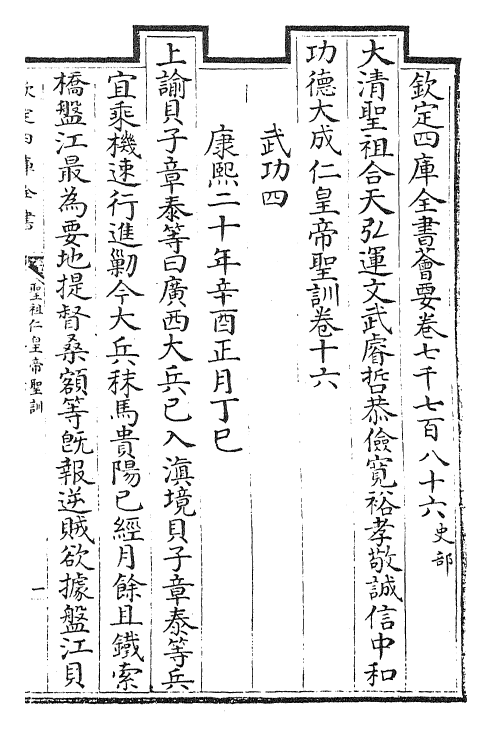 欽定四庫全書薈要卷七千七百八十六史部
大清聖祖合天弘運文武睿哲恭儉寬裕孝敬誠信中和
功德大成仁皇帝聖訓卷十六
武功四
康熙二十年辛酉正月丁巳
上諭貝子章泰等曰廣西大兵已入滇境貝子章泰等兵
宜乘機速行進剿今大兵秣馬貴陽已經月餘且鐵索
橋盤江最為要地提督桑額等旣報逆賊欲據盤江貝
欽定四庫全書
聖祖仁皇帝聖訓
一